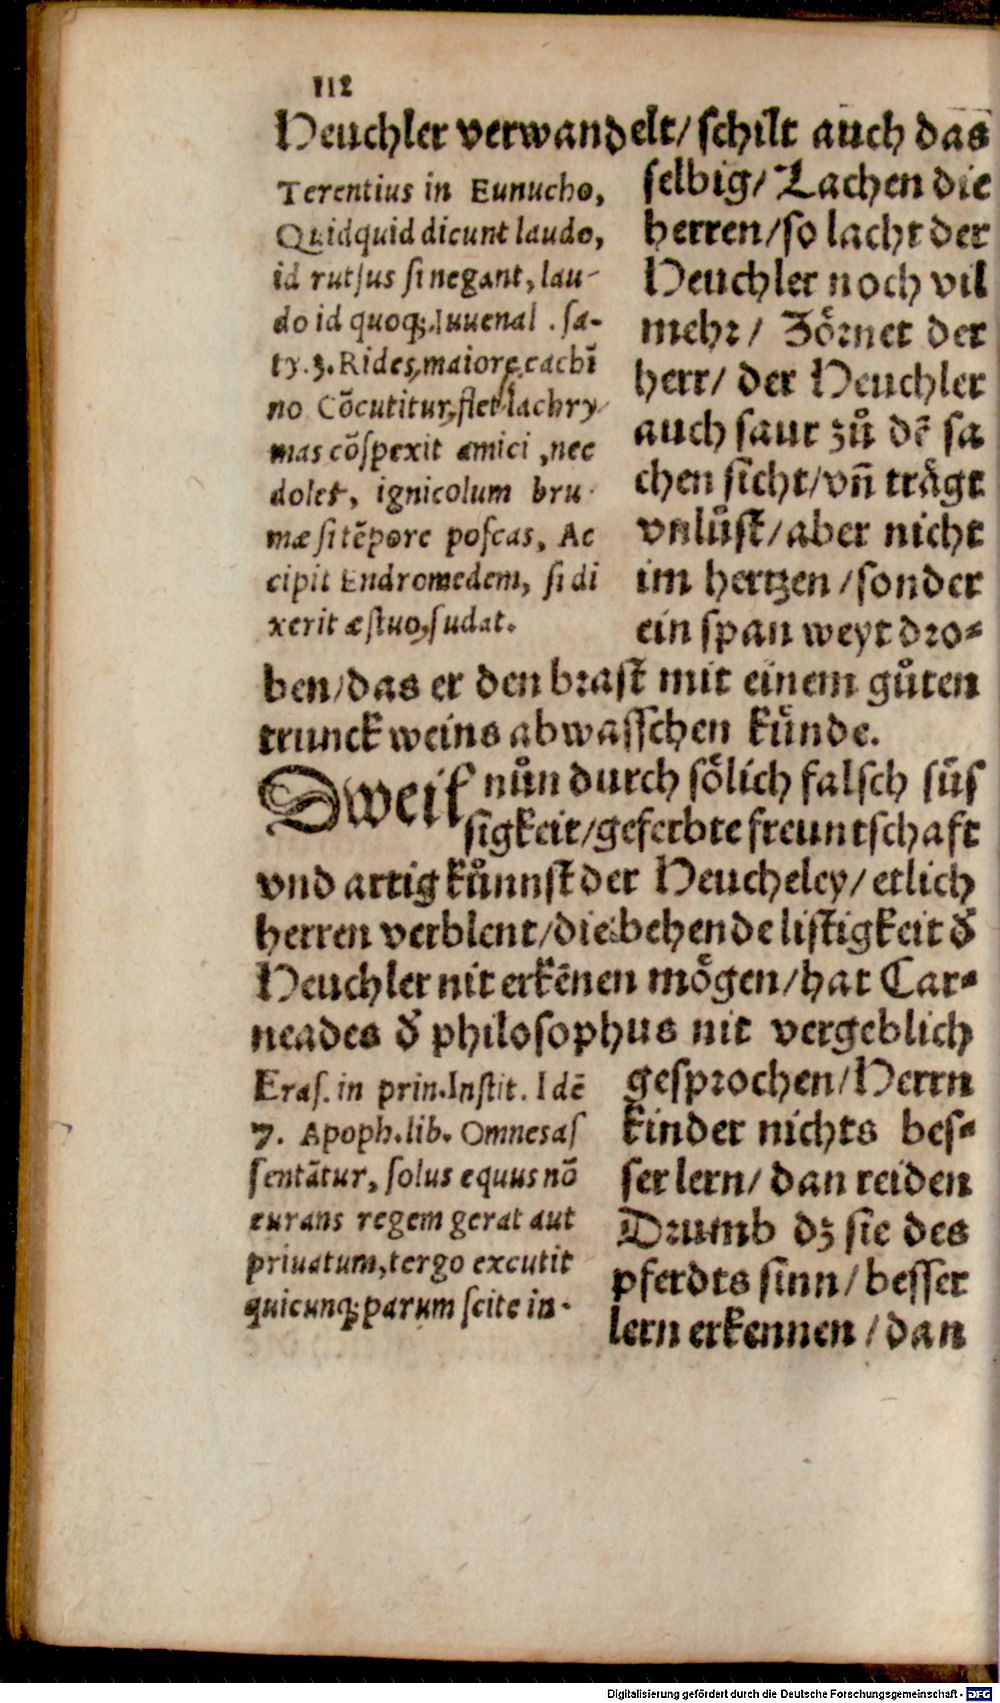 112
Heuchler verwandelt/ schilt auch das
selbig/ Lachen die
herren/so lacht der
Heuchler noch vil
mehr/ Zoͤrnet der
herr/ der Heuchler
auch saur zů dē sa
chen sicht/vn̄ traͤgt
vnlůst/aber nicht
im hertzen /sonder
ein span weyt dro⸗
Terentius in Eunucho,
Quidquid dicunt laudo,
id rursus si negant, lau-
do id quoqꝫ. Iuuenal . sa-
ty. 3. Rides, maiore cachī
no Cōcutitur, flet si lachry
mas cōspexit amici ,nec
dolet, ignicolum bru-
mæ si tēpore poscas, Ac
cipit Endromedem, si di
xerit æstuo, sudat.
ben/das er den brast mit einem gůten
trunck weins abwasschen kuͤnde.
Dweil nůn durch soͤlich falsch suͤs
sigkeit/geferbte freuntschaft
vnd artig kůnnst der Heucheley/ etlich
herren verblent/die behende listigkeit đ
Heuchler nit erkēnen moͤgen/hat Car⸗
neades đ philosophus nit vergeblich
gesprochen/Herrn
kinder nichts bes⸗
ser lern/ dan reiden
Drumb dꝫ sie des
pferdts sinn/ besser
lern erkennen /dan
Eras. in prin. Instit. Idē
7. Apoph. lib. Omnes as
sentātur, solus equus nō
curans regem gerat aut
priuatum, tergo excutit
quicunqꝫ parum scite in-
Digitalisierung gefördert durch die Deutsche Forschungsgemeinschaft - DFG